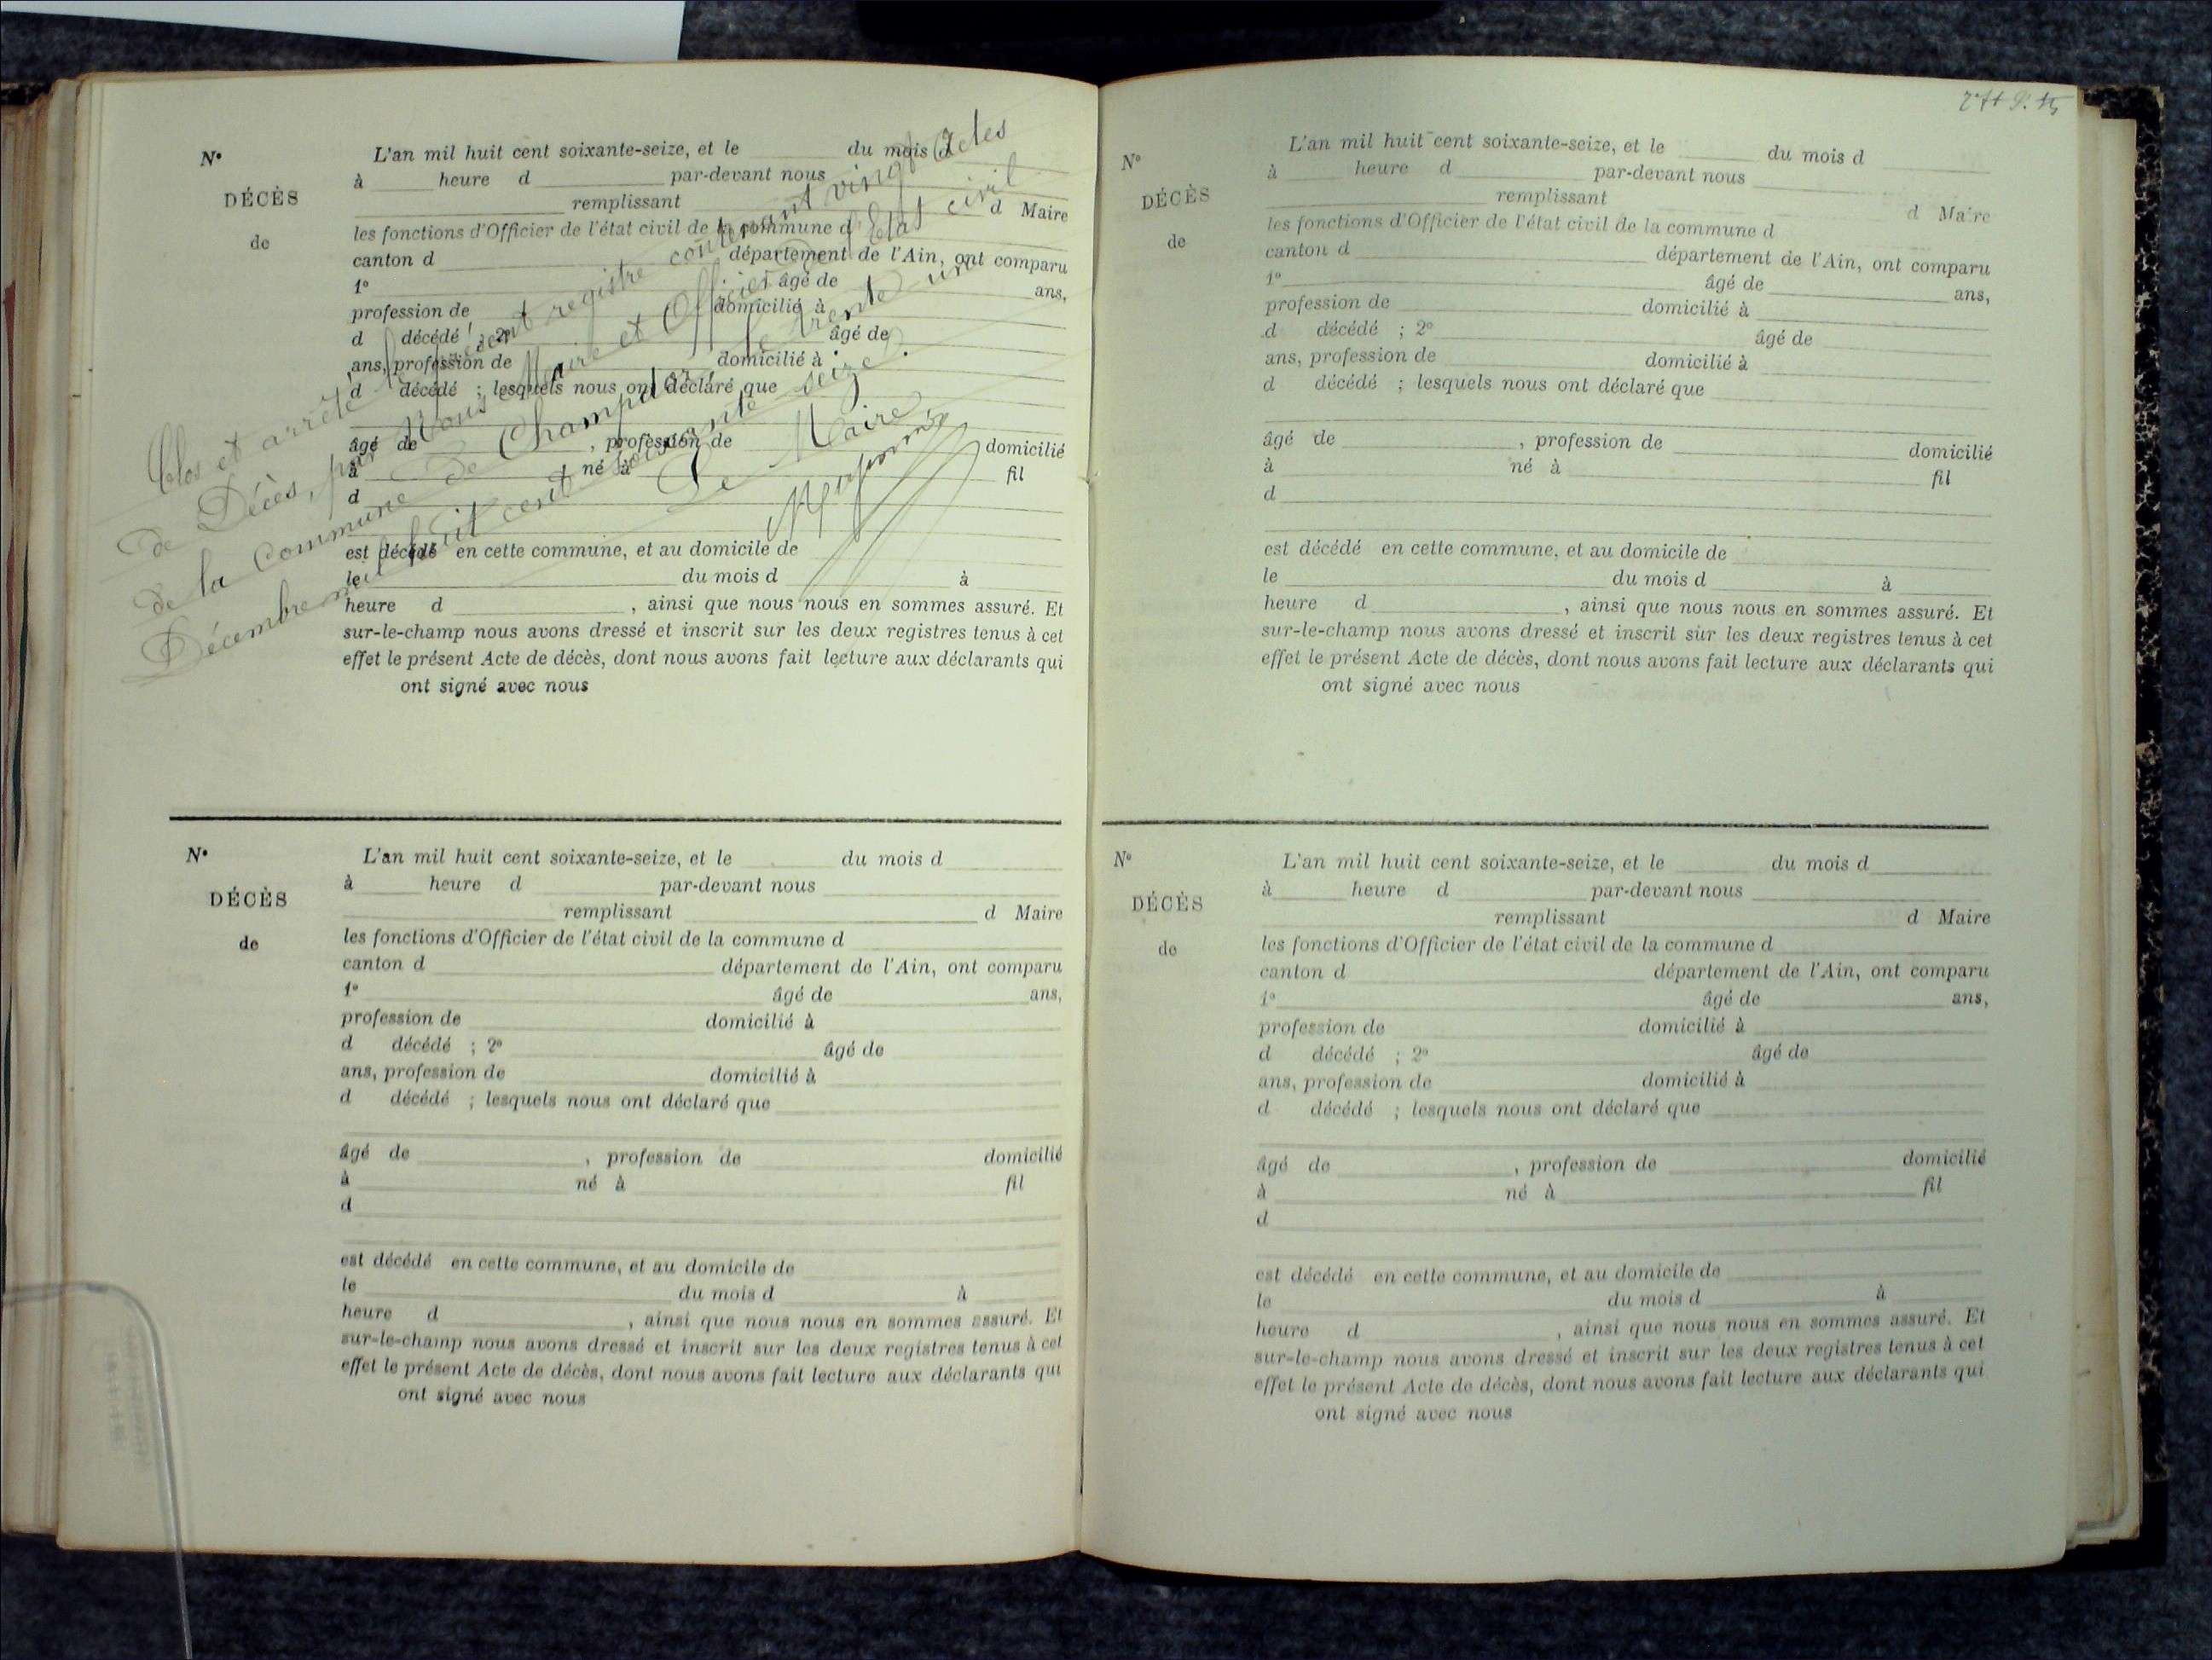 Clos et arrêté le présent registre contenant vingt Actes
de Décès, par Nous Maire et Officier de l'Etat civil
de la Commune de Champdor, le trente un
Décembre mil huit cent soixante seize.
Le Maire
N°
DÉCÈS
de
L'an mil huit cent soixante-seize, et le du mois d
à heure d par-devant nous
remplissant d Maire
les fonctions d'Officier de l'état civil de la commune d
canton d département de l'Ain, ont comparu
1° âgé de ans,
profession de domicilié à
d décédé ; 2° âgé de
ans, profession de domicilié à
d décédé ; lesquels nous ont déclaré que
âgé de , profession de domicilié
à né à fil
d
est décédé en cette commune, et au domicile de
le du mois d à
heure d , ainsi que nous nous en sommes assuré. Et
sur-le-champ nous avons dressé et inscrit sur les deux registres tenus à cet
effet le présent Acte de décès, dont nous avons fait lecture aux déclarants qui
ont signé avec nous
N°
DÉCÈS
de
L'an mil huit cent soixante-seize, et le du mois d
à heure d par-devant nous
remplissant d Maire
les fonctions d'Officier de l'état civil de la commune d
canton d département de l'Ain, ont comparu
1° âgé de ans,
profession de domicilié à
d décédé ; 2° âgé de
ans, profession de domicilié à
d décédé ; lesquels nous ont déclaré que
âgé de , profession de domicilié
à né à fil
d
est décédé en cette commune, et au domicile de
le du mois d à
heure d , ainsi que nous nous en sommes assuré. Et
sur-le-champ nous avons dressé et inscrit sur les deux registres tenus à cet
effet le présent Acte de décès, dont nous avons fait lecture aux déclarants qui
ont signé avec nous
N°
DÉCÈS
de
L'an mil huit cent soixante-seize, et le du mois d
à heure d par-devant nous
remplissant d Maire
les fonctions d'Officier de l'état civil de la commune d
canton d département de l'Ain, ont comparu
1° âgé de ans,
profession de domicilié à
d décédé ; 2° âgé de
ans, profession de domicilié à
d décédé ; lesquels nous ont déclaré que
âgé de , profession de domicilié
à né à fil
d
est décédé en cette commune, et au domicile de
le du mois d à
heure d , ainsi que nous nous en sommes assuré. Et
sur-le-champ nous avons dressé et inscrit sur les deux registres tenus à cet
effet le présent Acte de décès, dont nous avons fait lecture aux déclarants qui
ont signé avec nous
N°
DÉCÈS
de
L'an mil huit cent soixante-seize, et le du mois d
à heure d par-devant nous
remplissant d Maire
les fonctions d'Officier de l'état civil de la commune d
canton d département de l'Ain, ont comparu
1° âgé de ans,
profession de domicilié à
d décédé ; 2° âgé de
ans, profession de domicilié à
d décédé ; lesquels nous ont déclaré que
âgé de , profession de domicilié
à né à fil
d
est décédé en cette commune, et au domicile de
le du mois d à
heure d , ainsi que nous nous en sommes assuré. Et
sur-le-champ nous avons dressé et inscrit sur les deux registres tenus à cet
effet le présent Acte de décès, dont nous avons fait lecture aux déclarants qui
ont signé avec nous